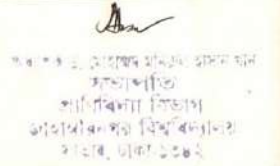 মোহাম্মদ হাসান খান
সভাপতি
প্রাণিবিদ্যা বিভাগ
জাহাঙ্গীরনগর বিশ্ববিদ্যালয়
সাভার, ঢাকা-১৩৪২